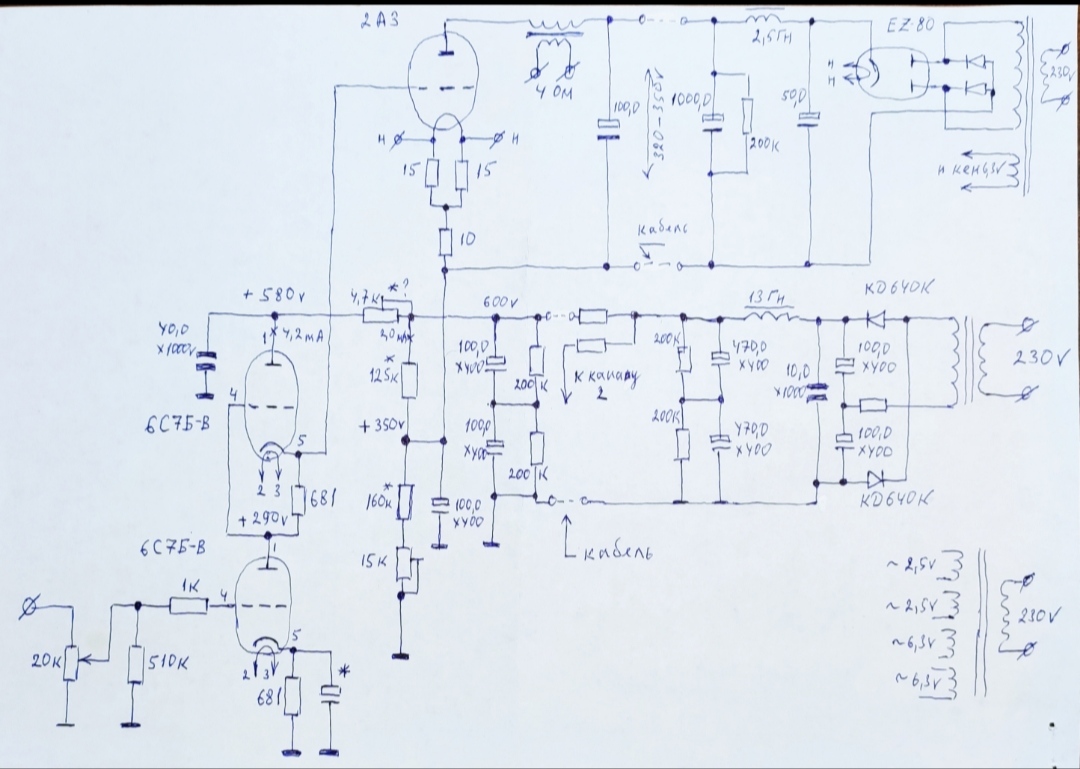 2A3
EZ-80
2,5Гн
230V
4 ОМ
100,0
320-350V
1000,0
200K
50,0
н
н
н
н
15
15
10
кабель
н кен 6,3V
+580V
4,7K
*?
600V
13 Гн
KD640K
40,0
x1000V
1
4,2mA
125K
*
100,0
x400
200K
к каналу
2
200K
470,0
x400
10,0
x1000
100,0
x400
230V
4
6С7Б-В
+350V
5
2 3
681
100,0
x400
200K
200K
470,0
x400
100,0
x400
KD640K
+290V
160K
*
100,0
x400
кабель
6С7Б-В
1
15K
~2,5V
~2,5V
~6,3V
~6,3V
230V
1K
4
5
20K
510K
2 3
681
*